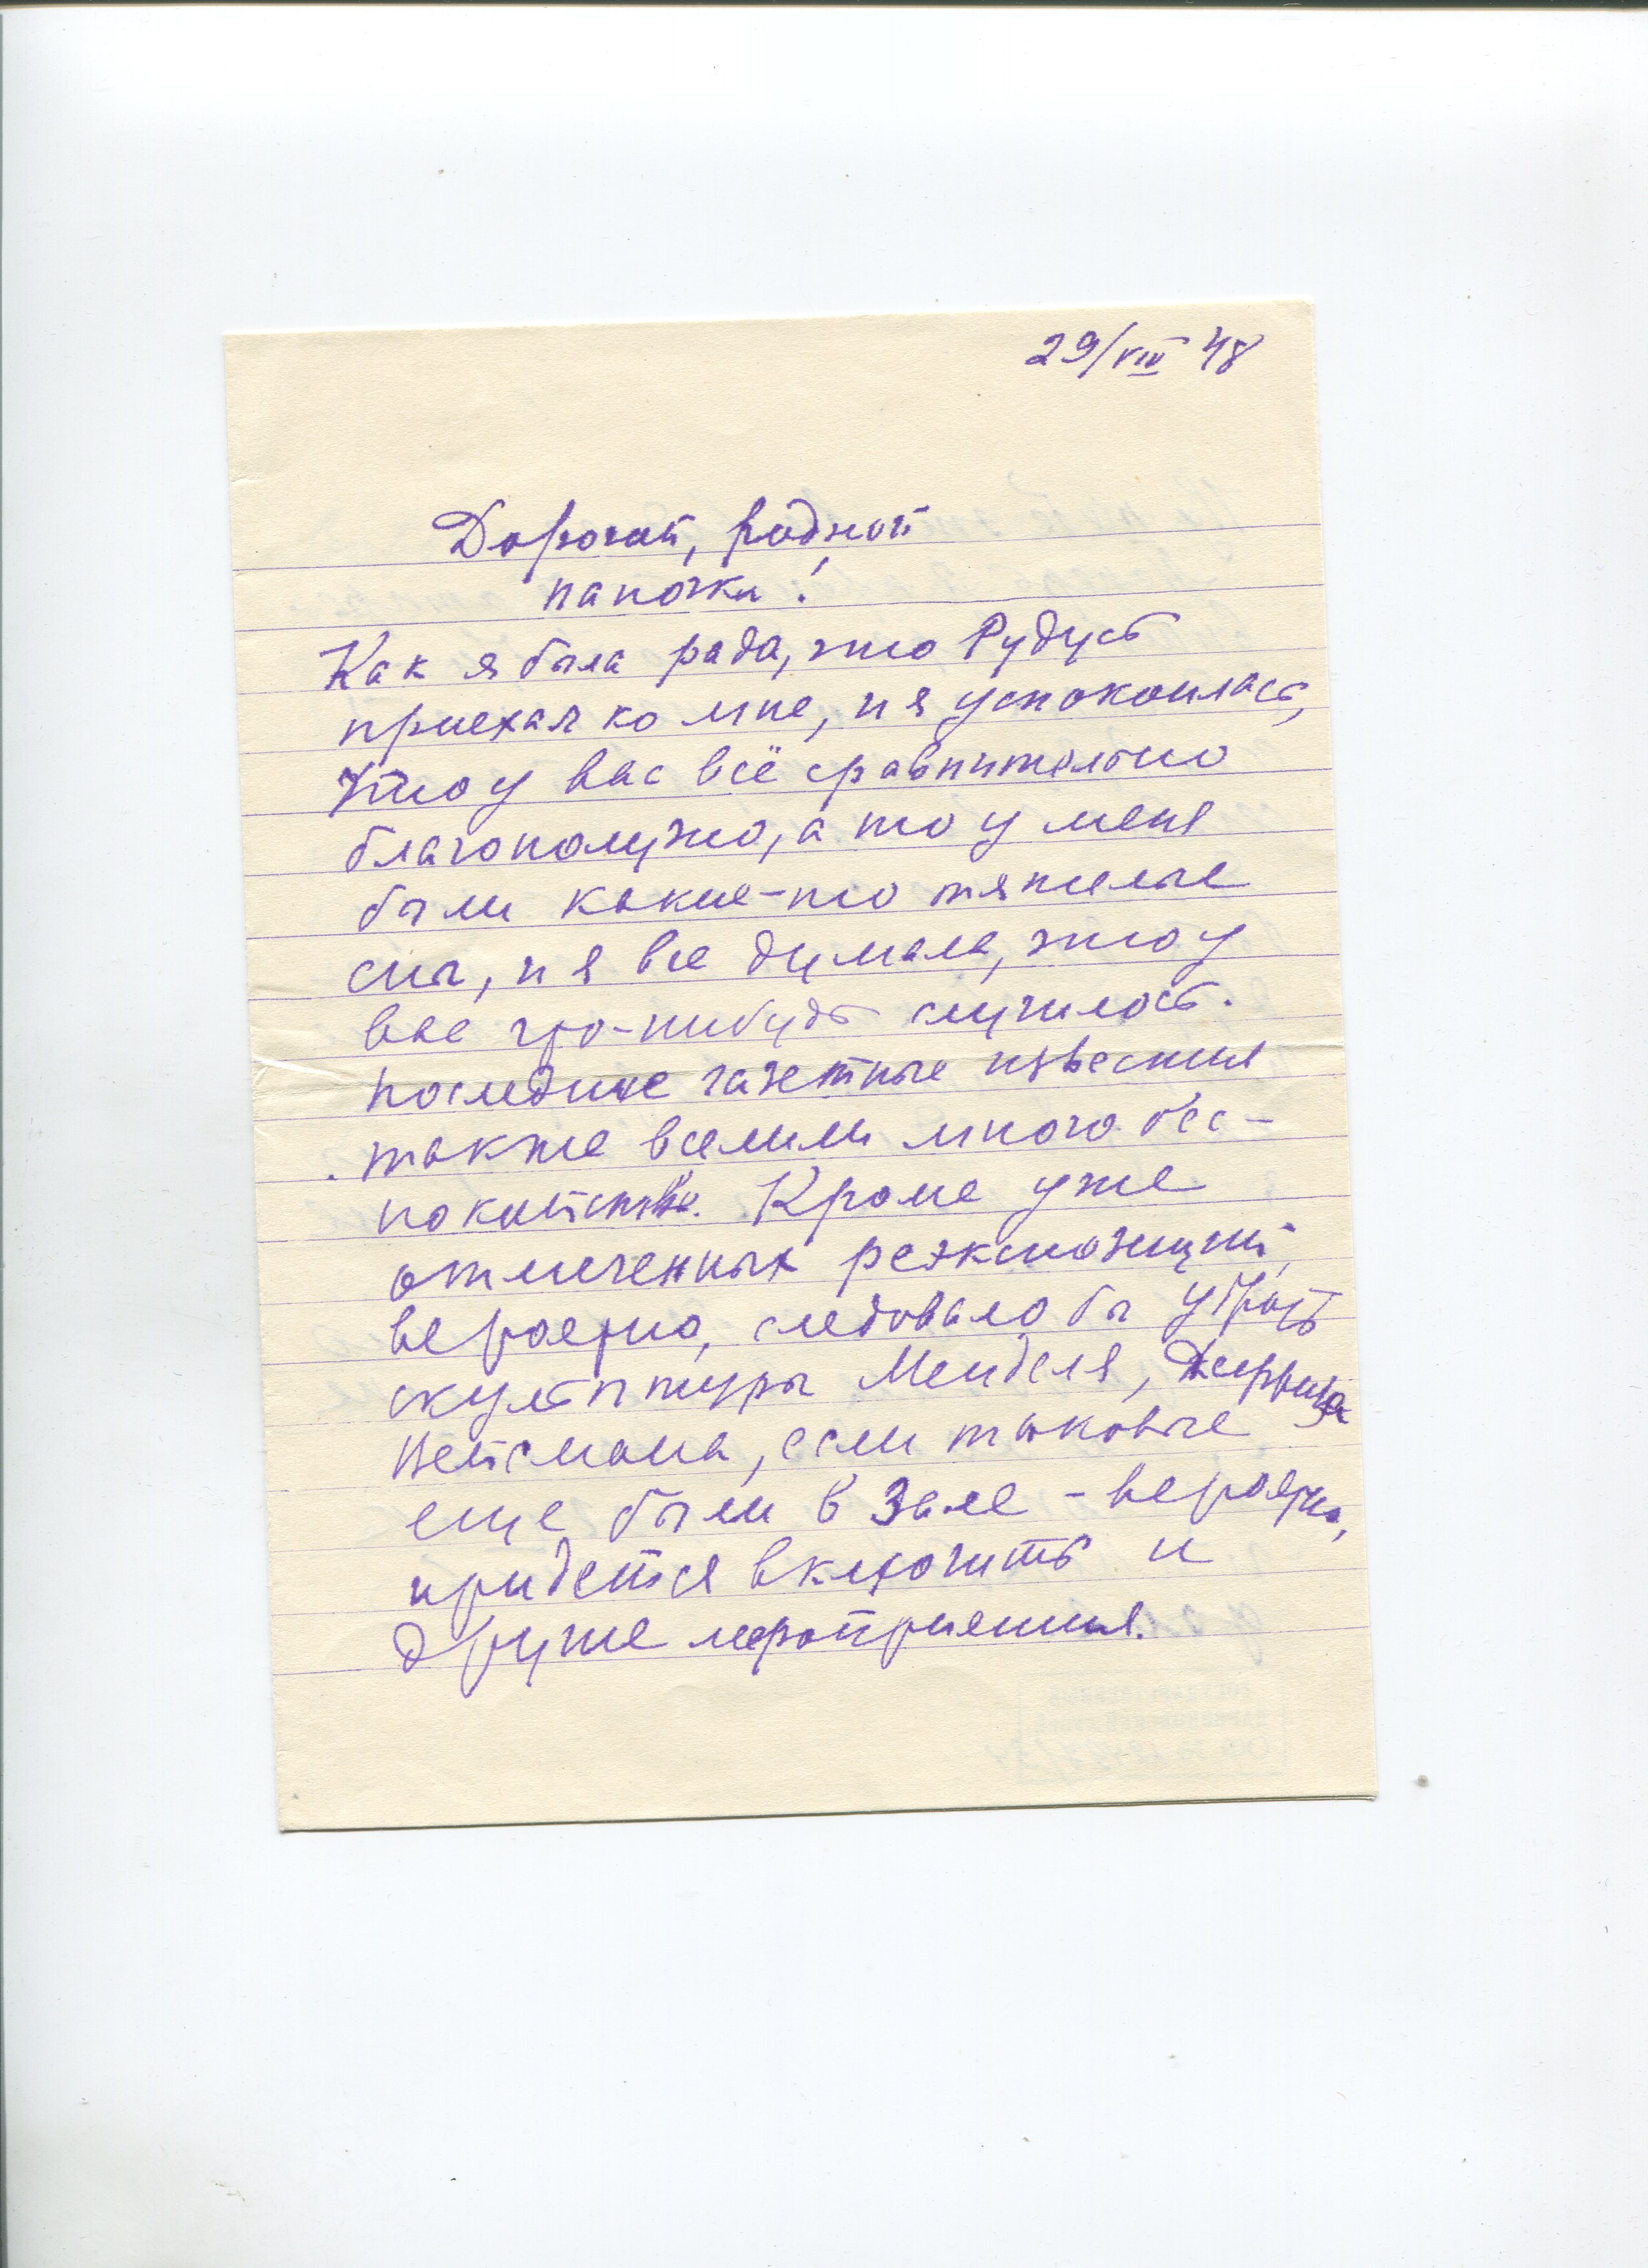 29/VIII 48
Дорогой, родной
папочка!
Как я была рада, что Рудусь
приехал ко мне, и я успокоилась,
что у вас всё сравнительно
благополучно, а то у меня
были какие-то тяжелые
сны, и я все думала, что у
вас что-нибудь случилось.
Последние газетные известия
также вселили много бес-
покойства. Кроме уже
отмеченных реэкспозиций,
вероятно, следовало бы убрать
скульптуры Менделя,
Вейсмана, если таковые
еще были в Зале - вероятно,
придется включить и
другие мероприятия.